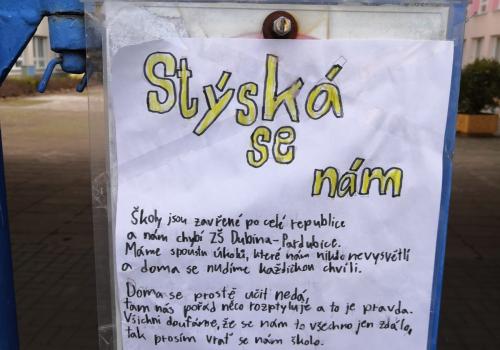 Stýská
se
nám
Školy jsou zavřené po celé republice
a nám chybí ZŠ Dubina-Pardubice.
Máme spoustu úkolů, které nám nikdo nevysvětlí
a doma se nudíme každičkou chvíli.
Doma se prostě učit nedá,
tam nás pořád něco rozptyluje a to je pravda.
Všichni doufáme, že se nám to všechno jen zdálo,
tak prosím vrať se nám školo.